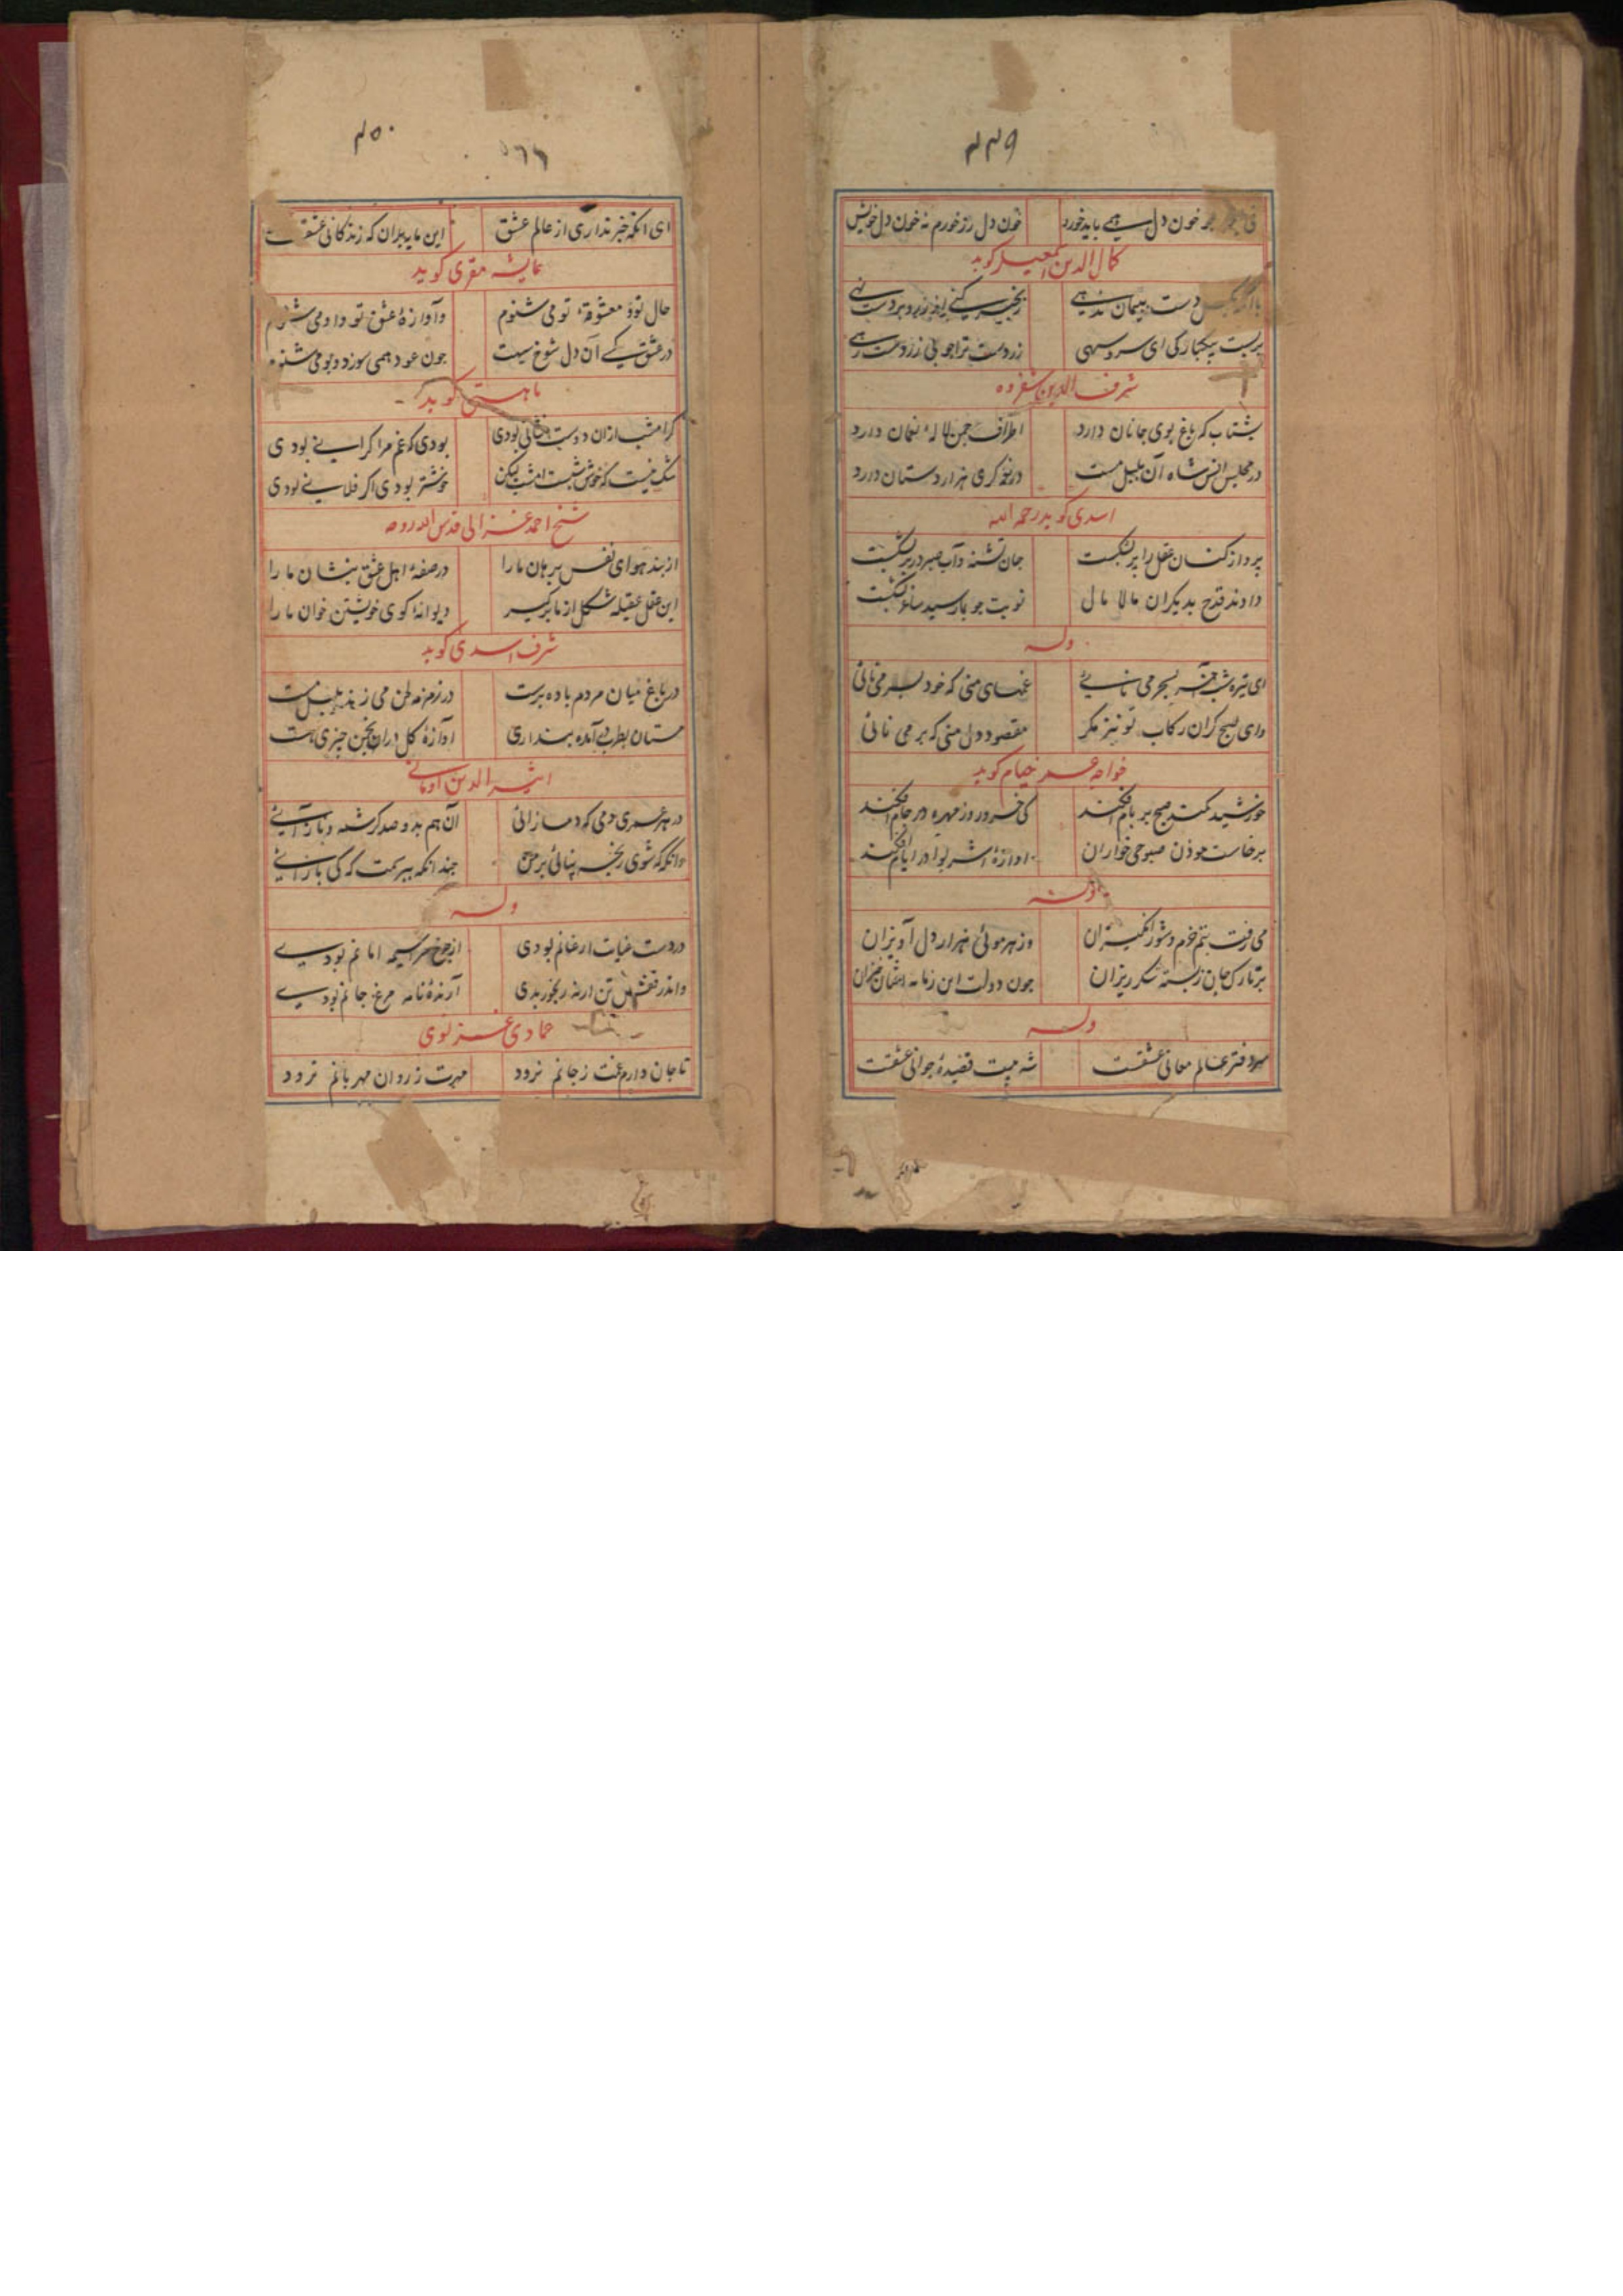 ۴۴۹
خون دل باید خورد خون دل رز خورم نه خون دل خویش
کمال الدین اسمعیل کوید
دست پیمان ندهی
زردست ترا جوئی زردست رهی
شرف الدین شفروه
بشتاب که باغ بوی جانان دارد اطراف چمن لالهٔ نعمان دارد
در مجلس انس شاه آن بلبل مست در نوکری هزار دستان دارد
اسدی کوید رحمه الله
پرداز کنان عقل را پر بشکست جان تشنه و آب صبر در بر بشکست
دادند قدح بدیکران مالا مال نوبت جو بما رسید ساغر بشکست
وله
ای تیره شب آخر بسحر می نائی غمهای منی که خود بسر می نائی
وای صبح کران رکاب تو نیز مکر مقصود دل منی که بر می نائی
خواجه عمر خیام کوید
خورشید کمند صبح بر بام افکند کی خسرو روز مهره در جام افکند
برخاست موذن صبوحی خواران اوازهٔ اشربوا در ایام افکند
وله
می رفت بتم خرم و شور انکیزان وز هر موئی هزار دل آویزان
بر تارک جان ز بسته شکر ریزان جون دولت این زمانه افتان خیزان
وله
سر دفتر عالم معانی عشقست شه بیت قصیدهٔ جوانی عشقست
۴۵۰
۵۶۶
ای انکه خبر نداری از عالم عشق این مایه بدان که زندکانی عشقست
عایشه مقری کوید
حال تو و معشوقهٔ تو می شنوم وآوازهٔ عشق تو و او می شنوم
در عشق کسی آن دل شوخ سیت جون عود همی سوزد و بو می شنوم
مهستی کوید
کر امشب ازان دوست نشانی بودی بودی که غم مرا کرانی بودی
شک نیست که خوش شبست امشب لیکن خوشتر بودی اکر فلانی بودی
شیخ احمد غزالی قدس الله روحه
از بند هوای نفس برهان ما را در صفهٔ اهل عشق بنشان ما را
این عقل عقیله شکل از ما برکیر دیوانهٔ کوی خویشتن خوان ما را
شرف اسدی کوید
در باغ میان مردم باده پرست در زمزمه طن می زند بلبل مست
مستان بطرب در آمده پنداری آوازهٔ کل دران انجمن جیزی هست
اثیر الدین اومانی
در هر عمری دمی که دمساز آئی آن هم بدو صد کرشمه و ناز آئی
وانکه که شوی رنجه بیائی بر من جندانکه ببرسمت که کی باز آئی
وله
در دست عنایت ار عنانم بودی از جرخ سراسیمه امانم بودی
واندر قفس تن ار نه رنجور بدی آرندهٔ نامه مرغ جانم بودی
عمادی غزنوی
تا جان دارم غمت ز جانم نرود مهرت ز روان مهربانم نرود